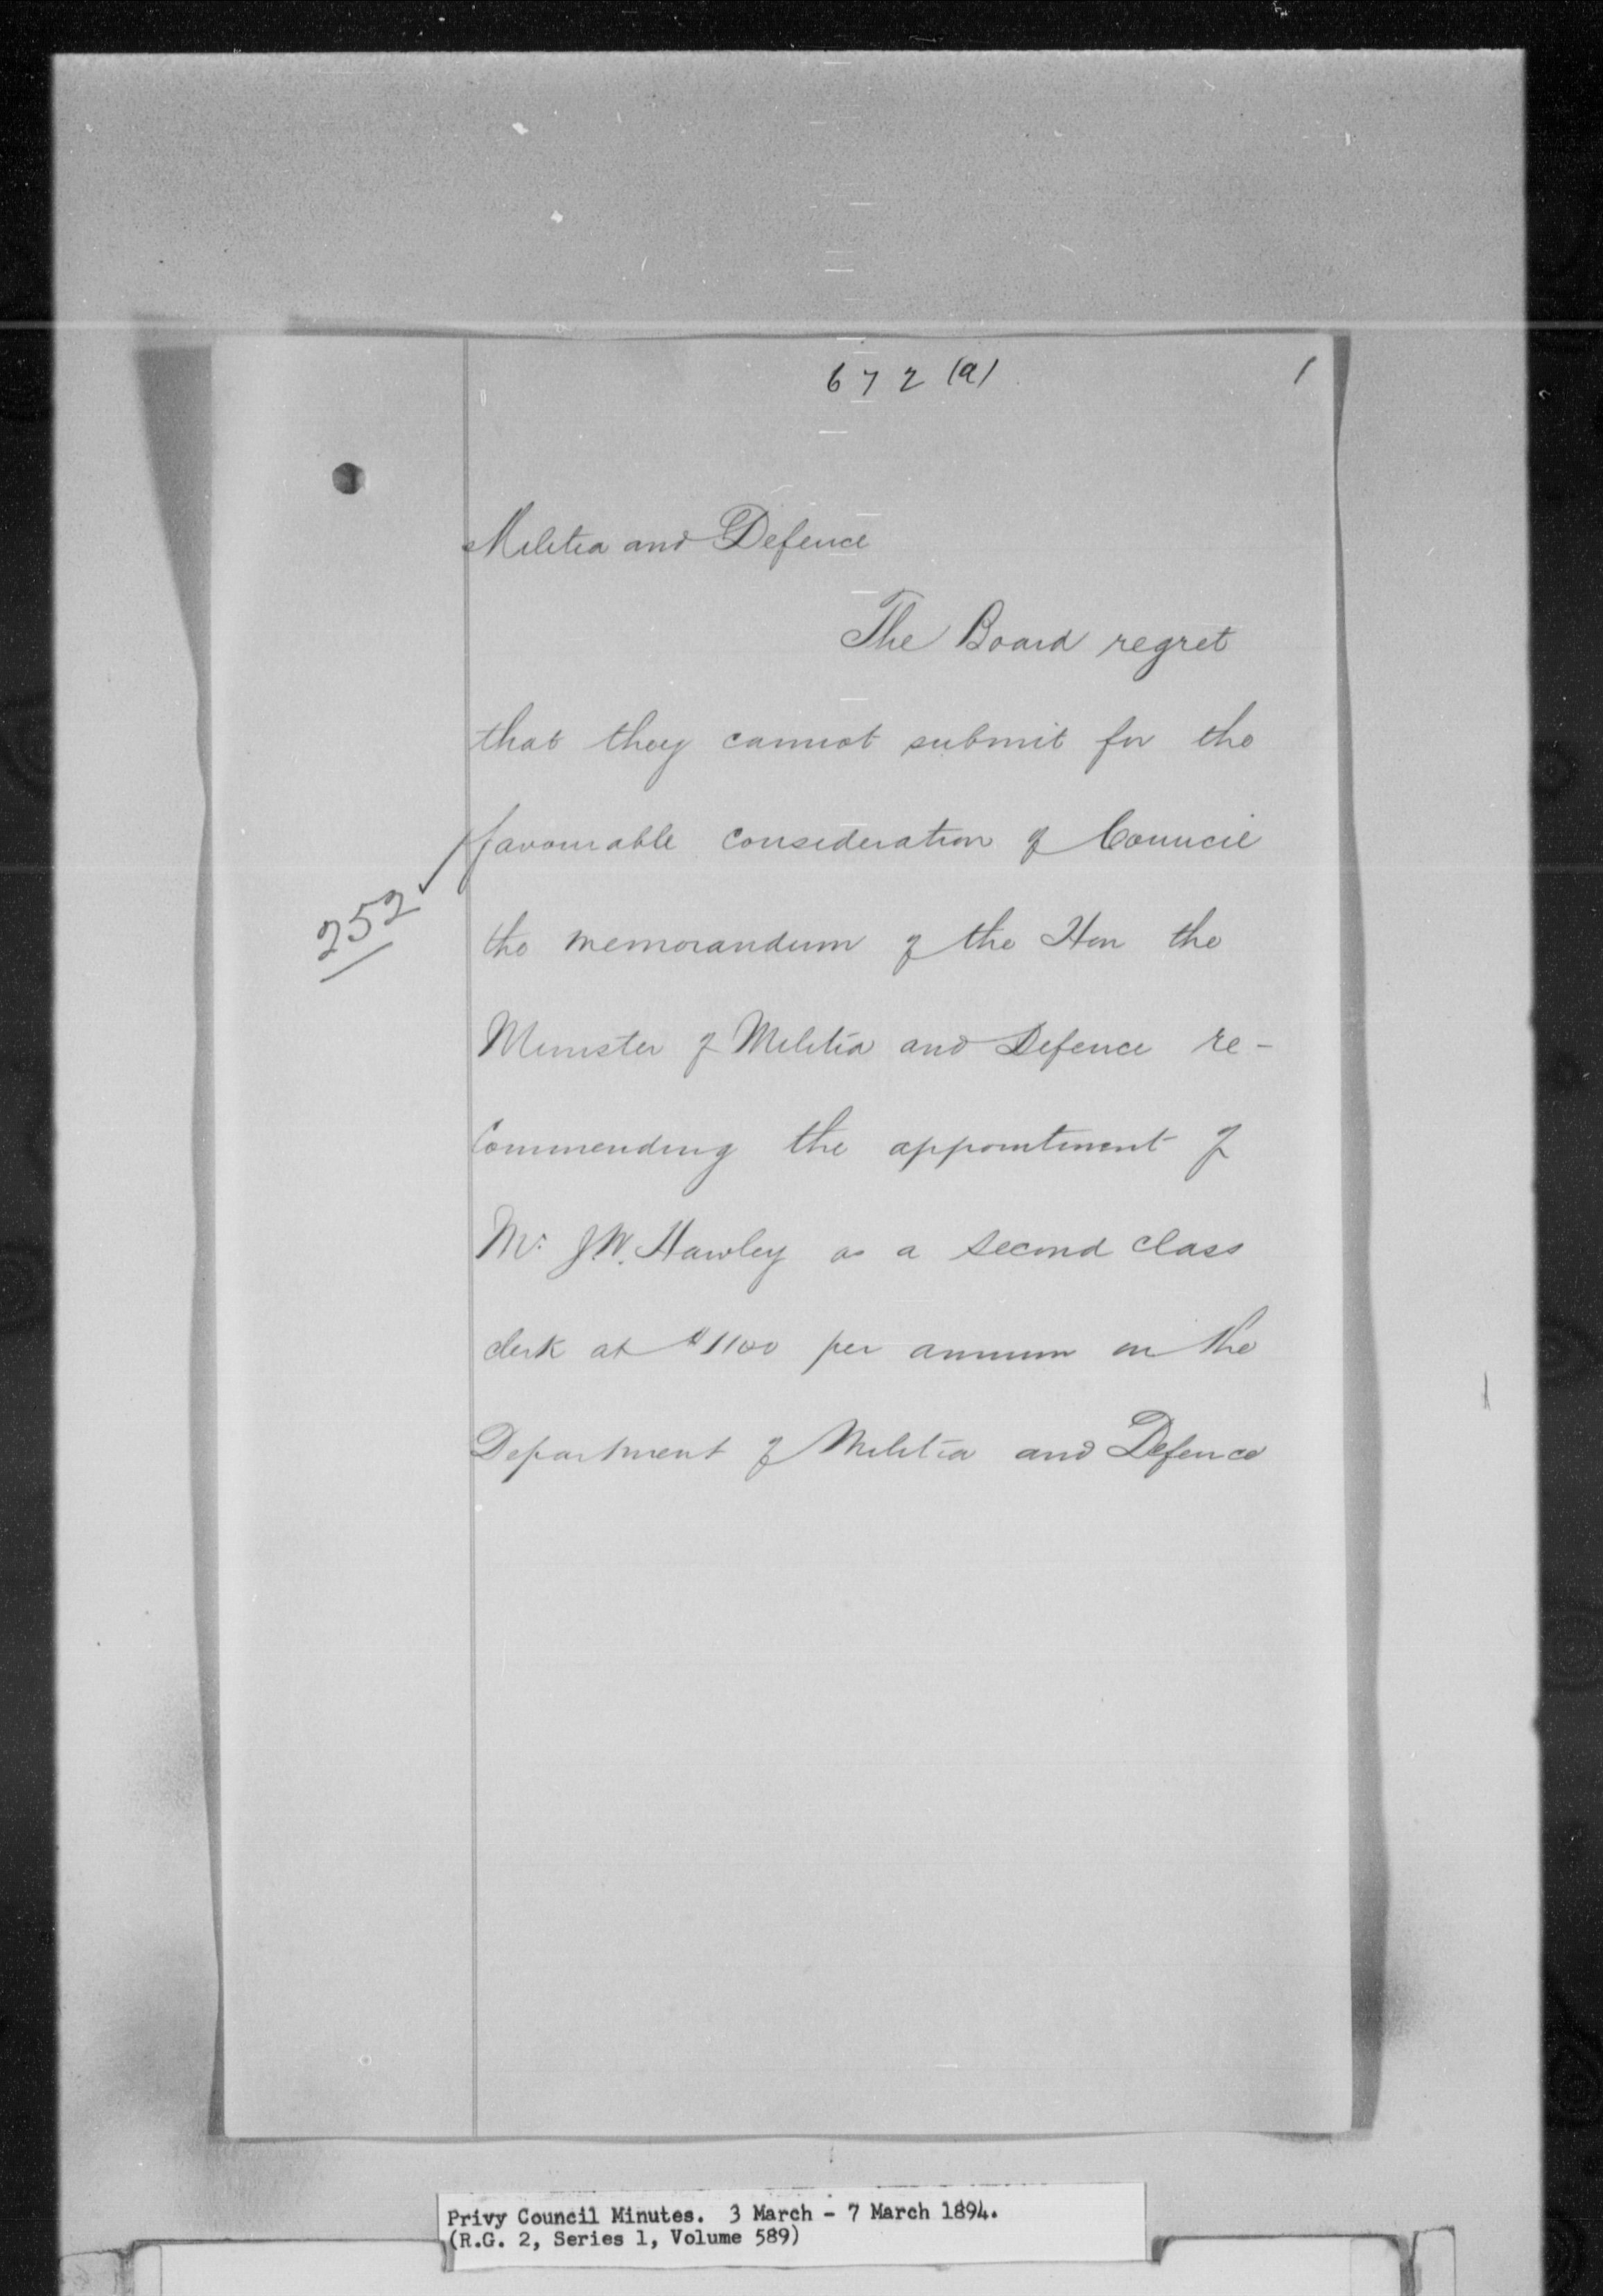 672 (a)
1
Militia and Defence
The Board regret
that they cannot submit for the
favourable consideration of Council
252
the memorandum of the Hon the
Minister of Militia and Defence re-
commending the appointment of
Mr. J.W. Hawley as a second class
clerk at $1100 per annum in the
Department of Militia and Defence
Privy Council Minutes. 3 March - 7 March 1894.
(R.G. 2, Series 1, Volume 589)